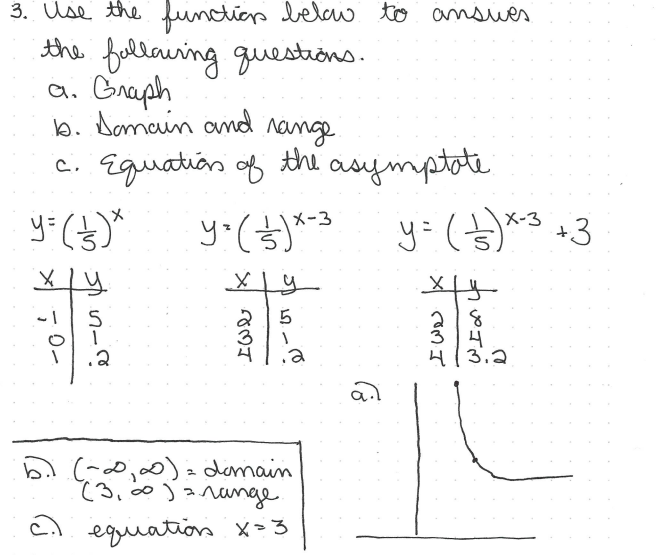 3. Use the function below to answer
the following questions.
a. Graph
b. Domain and range
c. Equation of the asymptote
y=(1/5)^x y=(1/5)^x-3 y=(1/5)^x-3 +3
x y x y x y
-1 5 2 5 2 8
0 1 3 1 3 4
1 .2 4 .2 4 3.2
a.)
b.) (-∞,∞) = domain
(3, ∞) = range
c.) equation x=3